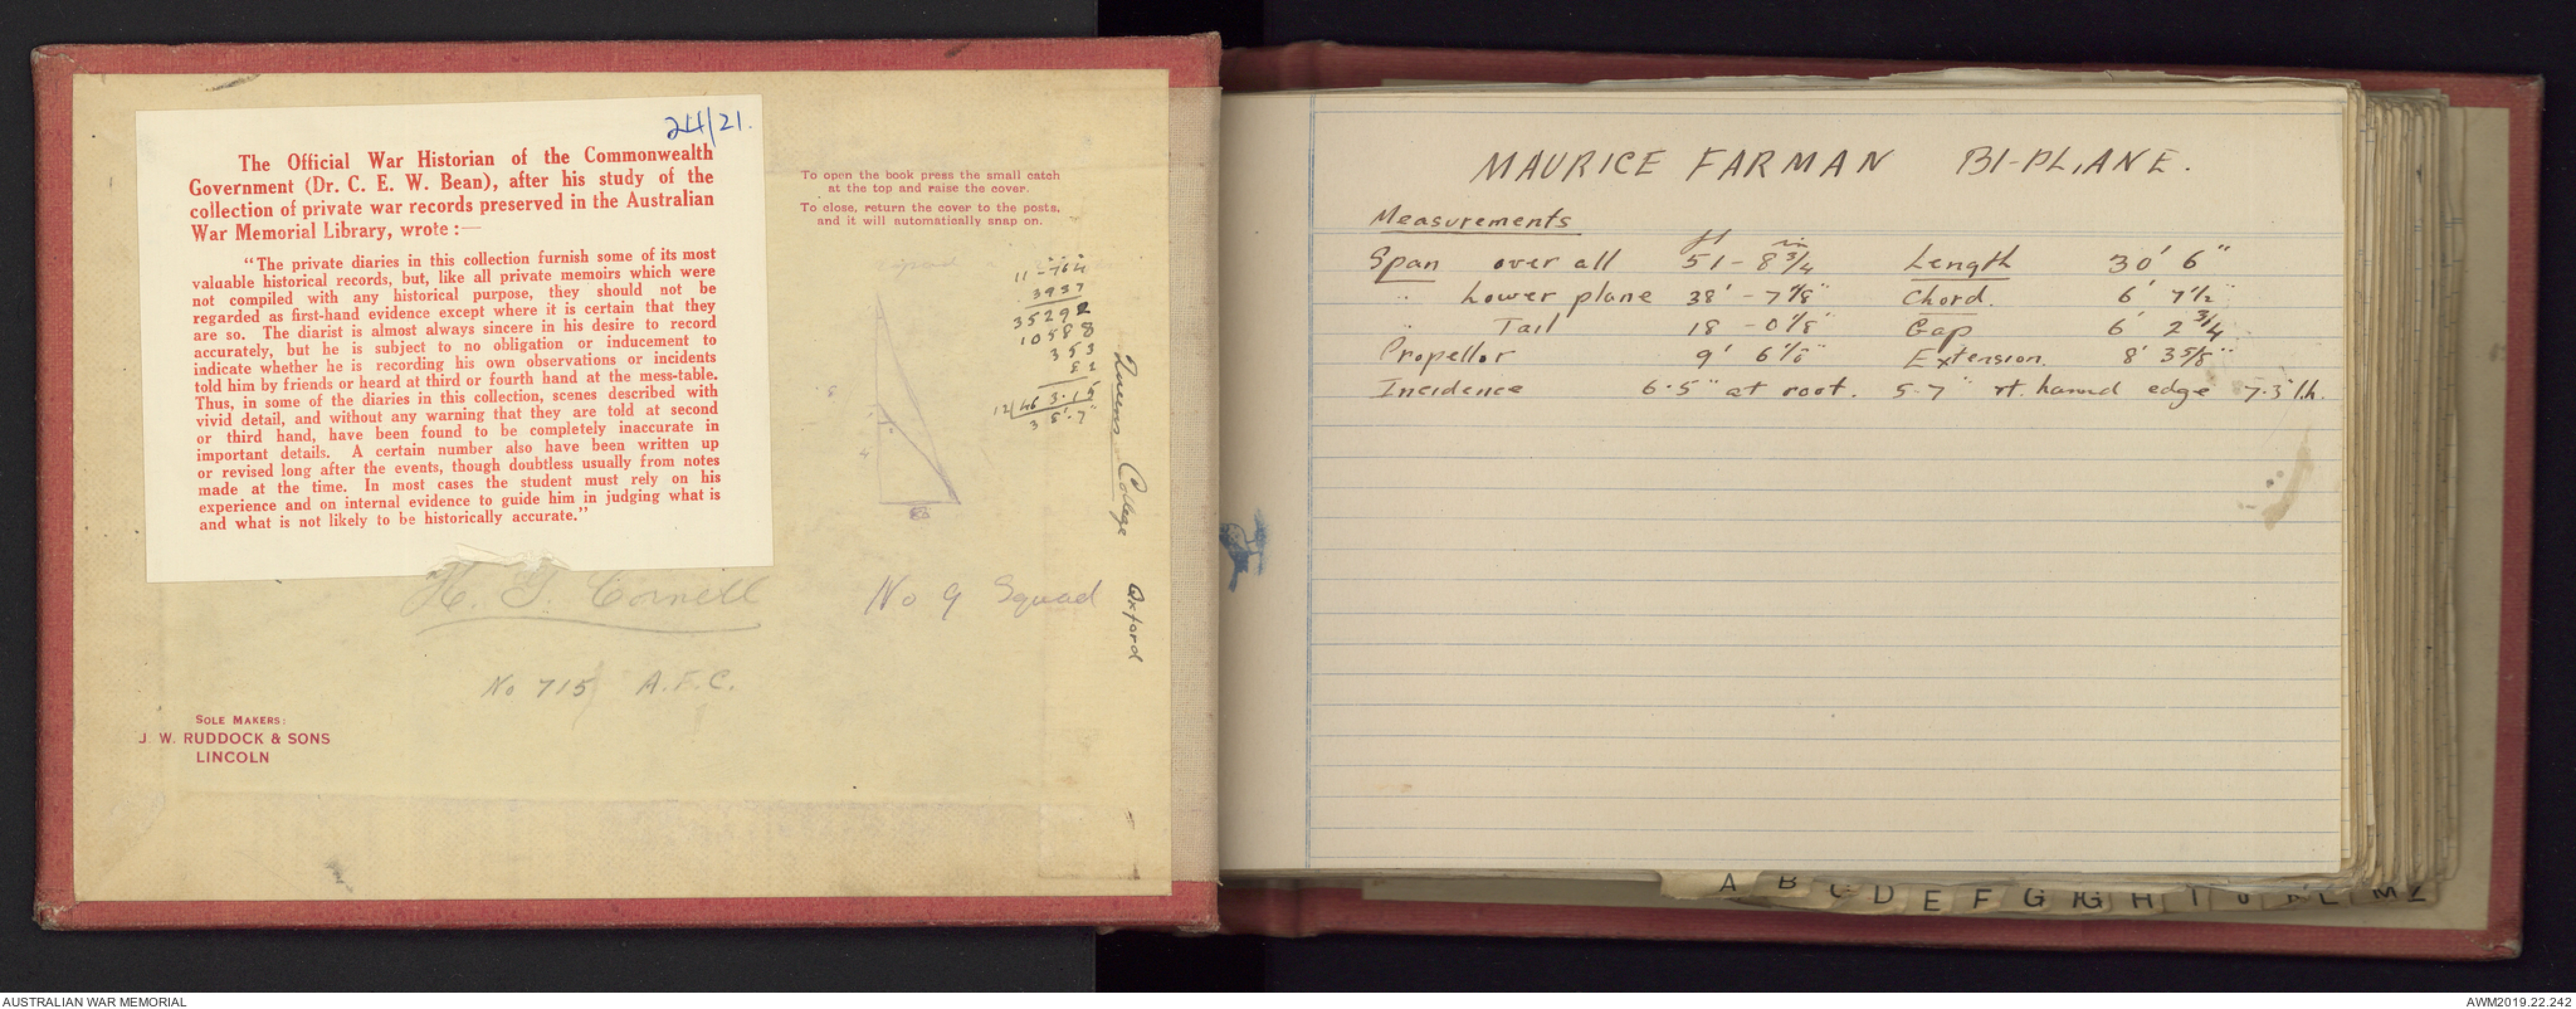 244/21.
The Official War Historian of the Commonwealth
Government (Dr. C. E. W. Bean), after his study of the
collection of private war records preserved in the Australian
War Memorial Library, wrote :—
"The private diaries in this collection furnish some of its most
valuable historical records, but, like all private memoirs which were
not compiled with any historical purpose, they should not be
regarded as first-hand evidence except where it is certain that they
are so. The diarist is almost always sincere in his desire to record
accurately, but he is subject to no obligation or inducement to
indicate whether he is recording his own observations or incidents
told him by friends or heard at third or fourth hand at the mess-table.
Thus, in some of the diaries in this collection, scenes described with
vivid detail, and without any warning that they are told at second
or third hand, have been found to be completely inaccurate in
important details. A certain number also have been written up
or revised long after the events, though doubtless usually from notes
made at the time. In most cases the student must rely on his
experience and on internal evidence to guide him in judging what is
and what is not likely to be historically accurate."
To open the book press the small catch
at the top and raise the cover.
To close, return the cover to the posts,
and it will automatically snap on.
11-764
3937
35292
10588
353
82
12/463.15
38'.7"
Queens College Oxford
H. G. Cornell
No 9 Squad
No 715 A.F.C.
SOLE MAKERS:
J. W. RUDDOCK & SONS
LINCOLN
MAURICE FARMAN BI-PLANE.
Measurements
ft in
Span over all 51 - 8 3/4 Length 30' 6"
" Lower plane 38' - 7 7/8" Chord. 6' 7 1/2"
" Tail 18 - 0 1/8" Gap 6' 2 3/4"
Propellor 9' 6 1/8" Extension. 8' 3 5/8"
Incidence 6.5" at root. 5.7" rt. hannd edge 7.3" l.h.
A B C D E F G H I J K L M Z
AUSTRALIAN WAR MEMORIAL
AWM2019.22.242